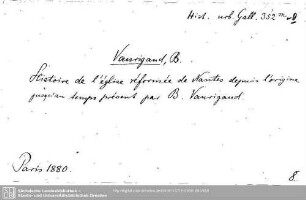 Hist. urb. Gall. 352 m-8
Vaurigaud, B.
Histoire de l'église réformée de Nantes depuis l'origine
jusqu'au temps présent par B. Vaurigaud.
Paris 1880.
8.
Sächsische Landesbibliothek -
Staats- und Universitätsbibliothek Dresden